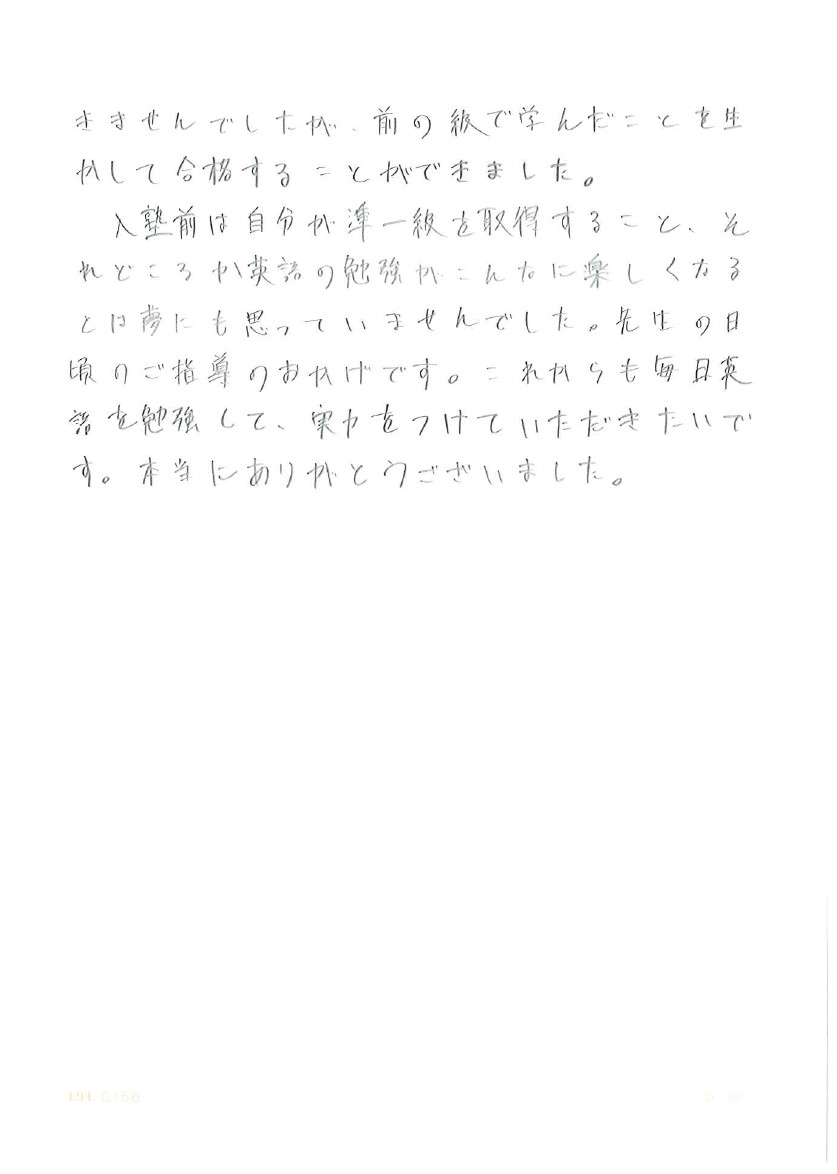 きませんでしたが、前の級で学んだことを生
かして合格することができました。
入塾前は自分が準一級を取得すること、そ
れどころか英語の勉強がこんなに楽しくなる
とは夢にも思っていませんでした。先生の日
頃のご指導のおかげです。これからも毎日英
語を勉強して、実力をつけていただきたいで
す。本当にありがとうございました。
LIFE C156